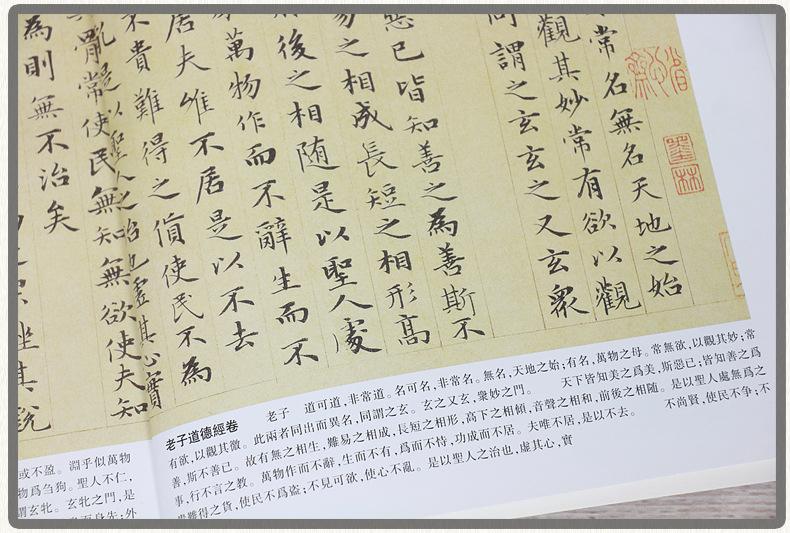 常名無名天地之始
觀其妙常有欲以觀
同謂之玄玄之又玄眾
惡已皆知善之為善斯不
易之相成長短之相形高
後之相随是以聖人處
萬物作而不辭生而不
居夫唯不居是以不去
不貴難得之貨使民不為
亂是以聖人之治也虛其心實
常使民無知無欲使夫知
為則無不治矣
挫其銳
墨林
老子道德經卷 老子 道可道,非常道。名可名,非常名。無名,天地之始;有名,萬物之母。常無欲,以觀其妙;常
有欲,以觀其徼。此兩者同出而異名,同謂之玄。玄之又玄,衆妙之門。 天下皆知美之爲美,斯惡已;皆知善之爲
善,斯不善已。故有無之相生,難易之相成,長短之相形,高下之相傾,音聲之相和,前後之相隨。是以聖人處無爲之
事,行不言之教。萬物作而不辭,生而不有,爲而不恃,功成而不居。夫唯不居,是以不去。 不尚賢,使民不爭;不
貴難得之貨,使民不爲盜;不見可欲,使心不亂。是以聖人之治也,虛其心,實
或不盈。淵乎似萬物
物爲芻狗。聖人不仁,
謂玄牝。玄牝之門,是
而身先;外